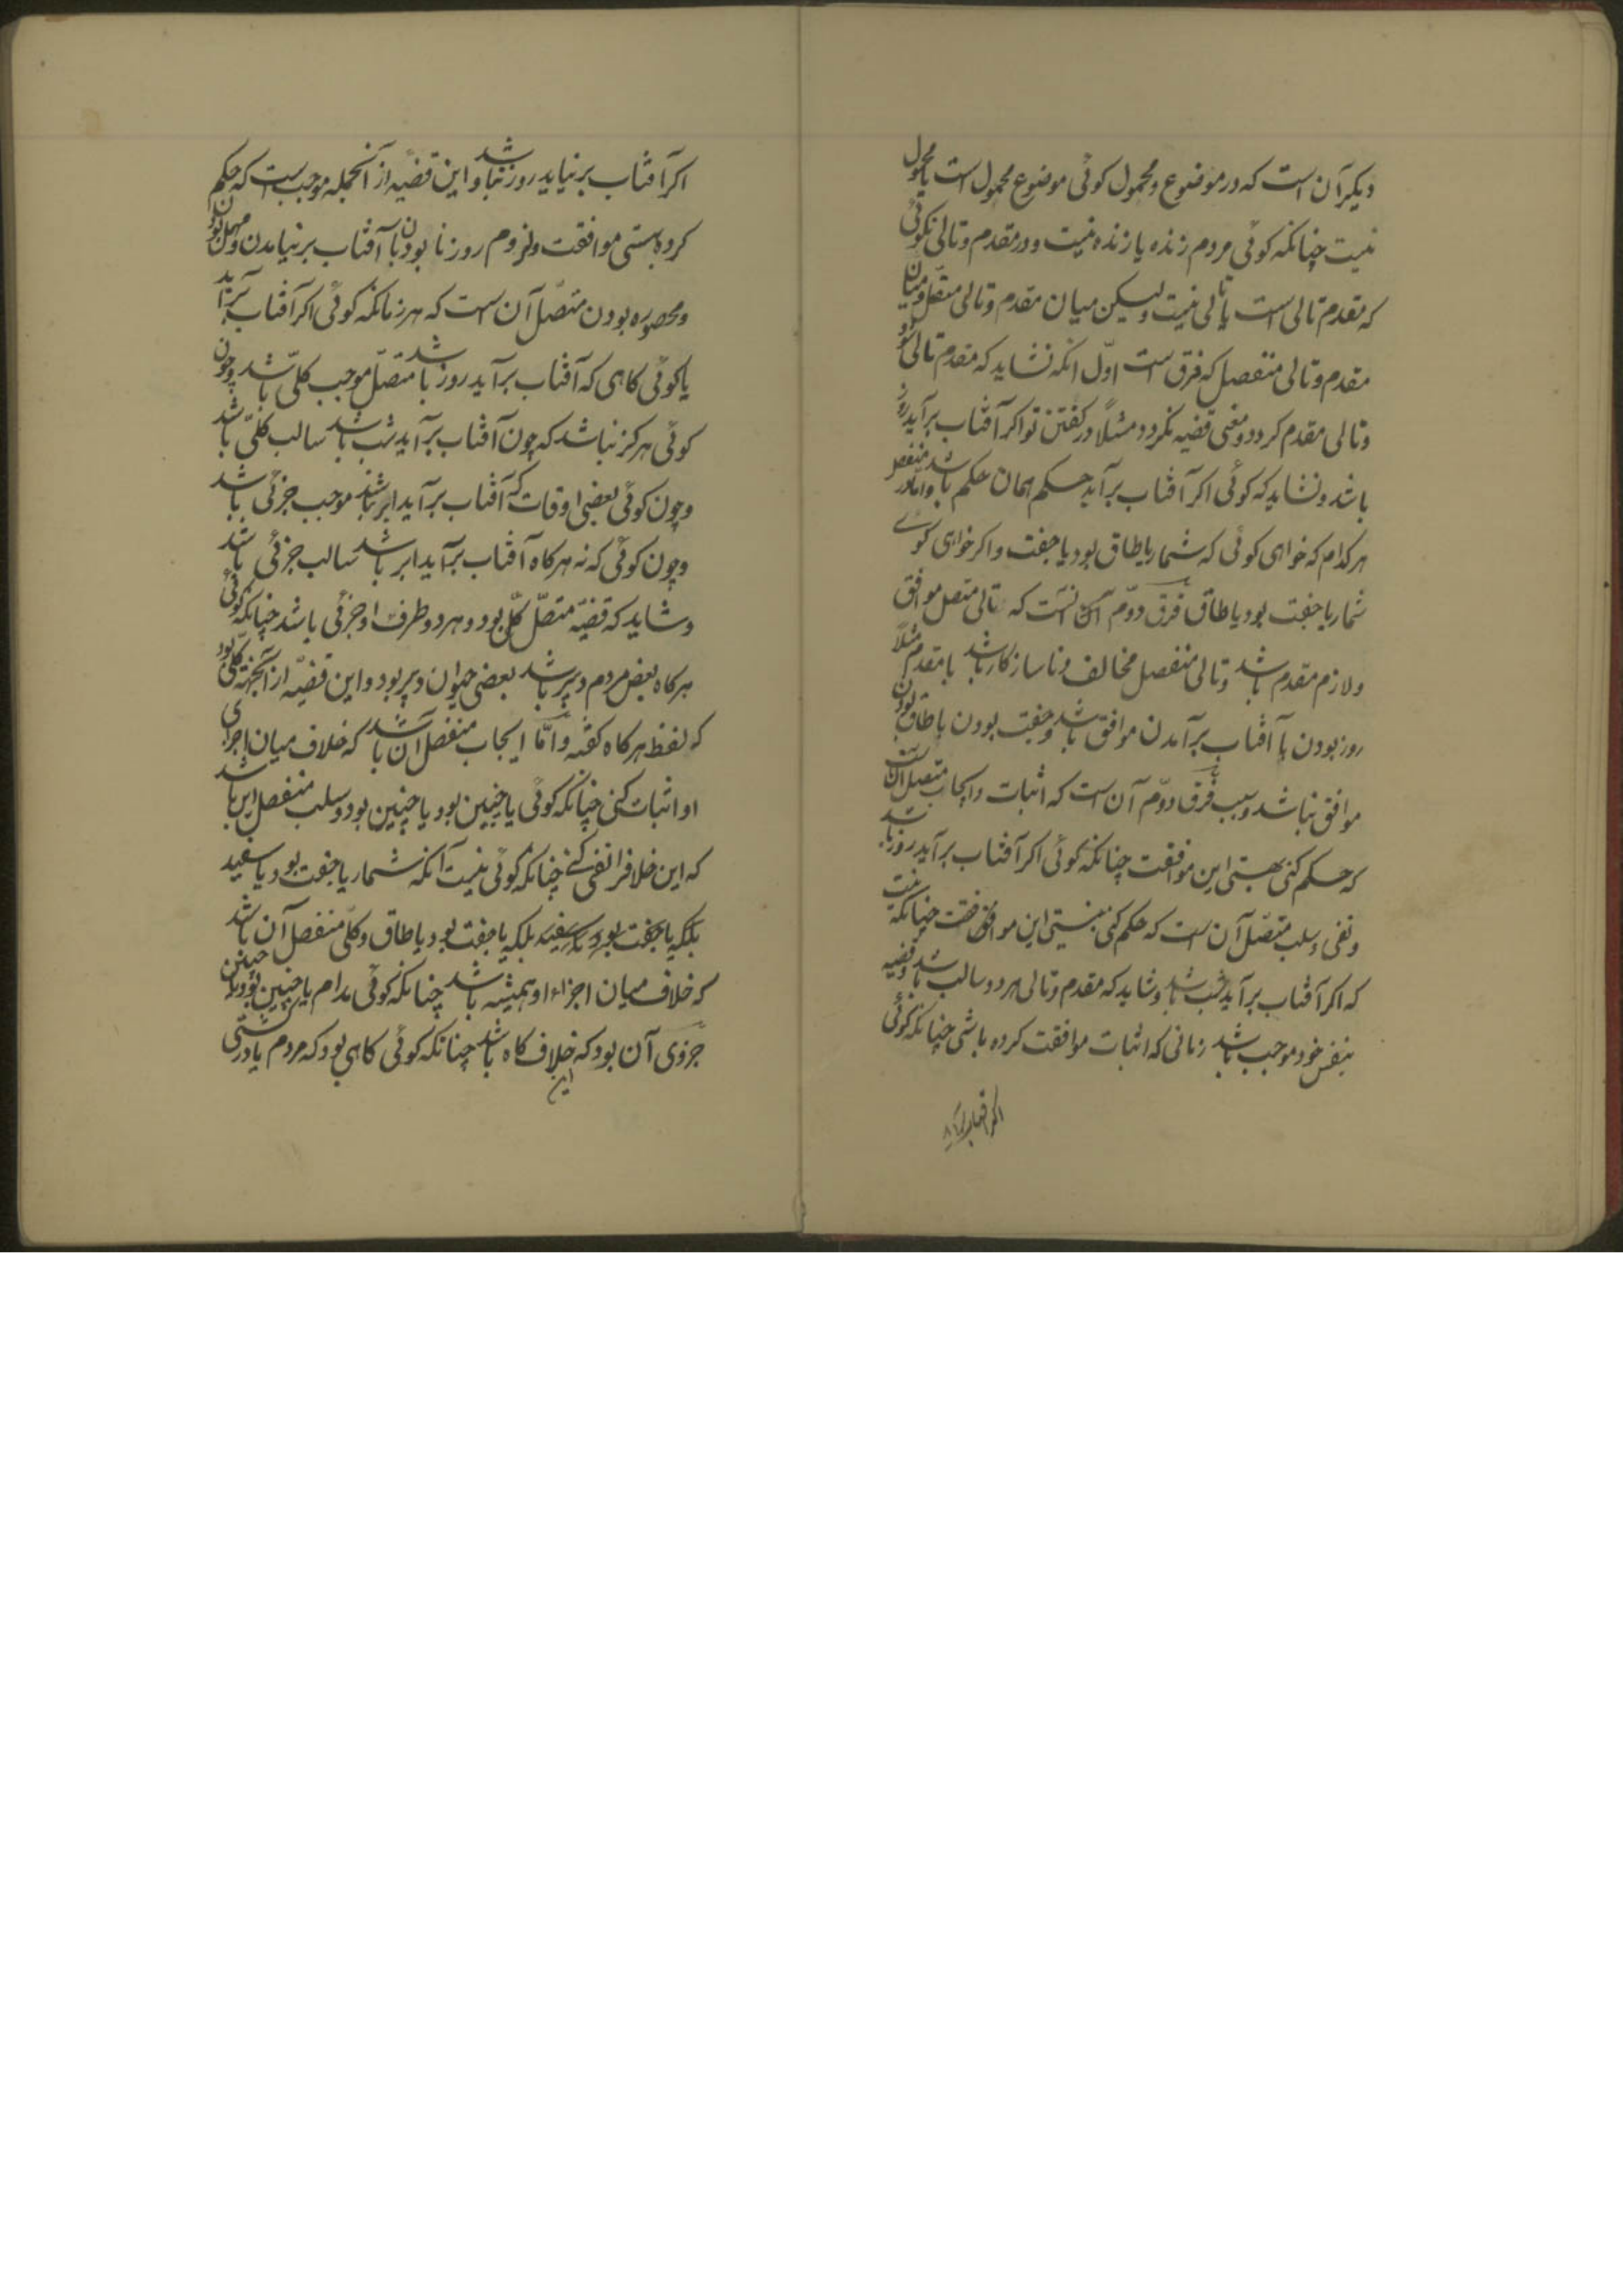 دیکر آن است که در موضوع و محمول کوئی موضوع محمول است یا محمول
نیست چنانکه کوئی مردم زنده یا زنده نیست و در مقدم و تالی نکوئی
که مقدم تالی است یا تالی نیست ولیکن میان مقدم و تالی متصل و میان
مقدم و تالی منفصل که فرق است اوّل انکه نشاید که مقدم تالی شود
و تالی مقدم کردد و معنی قضیه نکردد مثلاً در کفتن تو اکر آفتاب برآید روز
باشد و نشاید که کوئی اکر آفتاب برآید حکم همان حکم باشد و امّا در منفصل
هر کدام که خواهی کوئی که شمار یا طاق بود یا جفت و اکر خواهی کوی
شمار یا جفت بود یا طاق فرق دوّم آنست که تالی متصل موافق
و لازم مقدم باشد و تالی منفصل مخالف و ناسازکار باشد با مقدم مثلاً
روز بودن با آفتاب برآمدن موافق باشد و جفت بودن با طاق بودن
موافق نباشد و سبب فرق دوّم آن است که اثبات و ایجاب متصل آن است
که حکم کنی بهستی این موافقت چنانکه کوئی اکر آفتاب برآید روز باشد
و نفی و سلب متصّل آن است که حکم کنی بنیستی این موافقت چنانکه نیست
که اکر آفتاب برآید شب باشد و شاید که مقدم و تالی هر دو سالب باشد و قضیه
بنفس خود موجب باشد زمانی که اثبات موافقت کرده باشی چنانکه کوئی
اکر آفتاب برنیاید
اکر آفتاب برنیاید روز نباشد و این قضیّه از آنجمله موجب است که حکم
کرده بهستی موافقت و لزوم روز نابودن با آفتاب برنیامدن و مهمل بودن
و محصوره بودن متصّل آن است که هر زمانکه کوئی اکر آفتاب برآید
یا کوئی کاهی که آفتاب برآید روز باشد متصّل موجب کلّی باشد و چون
کوئی هرکز نباشد که چون آفتاب برآید شب باشد سالب کلّی باشد
و چون کوئی بعضی اوقات که آفتاب برآید ابر باشد موجب جزئی باشد
و چون کوئی که نه هرکاه آفتاب برآید ابر باشد سالب جزئی باشد
و شاید که قضیّه متصّل کلّی بود و هر دو طرف او جزئی باشد چنانکه کوئی
هرکاه بعض مردم دبیر باشد بعضی حیوان دبیر بود و این قضیّه از آنجهة کلّی بود
که لفظ هرکاه کفته و امّا ایجاب منفصل آن باشد که خلاف میان اجزای
او اثبات کنی چنانکه کوئی یا چنین بود یا چنین بود و سلب منفصل این باشد
که این خلاف را نفی کنی چنانکه کوئی نیست آنکه شمار یا جفت بود یا سفید
بلکه یا جفت بود یا سفید بلکه یا جفت بود یا طاق و کلّی منفصل آن باشد
که خلاف میان اجزاء او همیشه باشد چنانکه کوئی مدام یا چنین بود یا چنین
جزوی آن بود که این خلاف کاه باشد چنانکه کوئی کاهی بود که مردم یا در کشتی